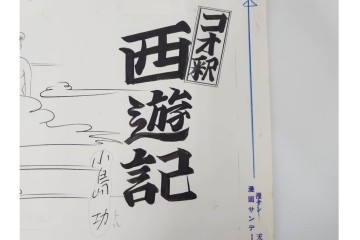 コオ釈
西遊記
小島功
漫画サンデー